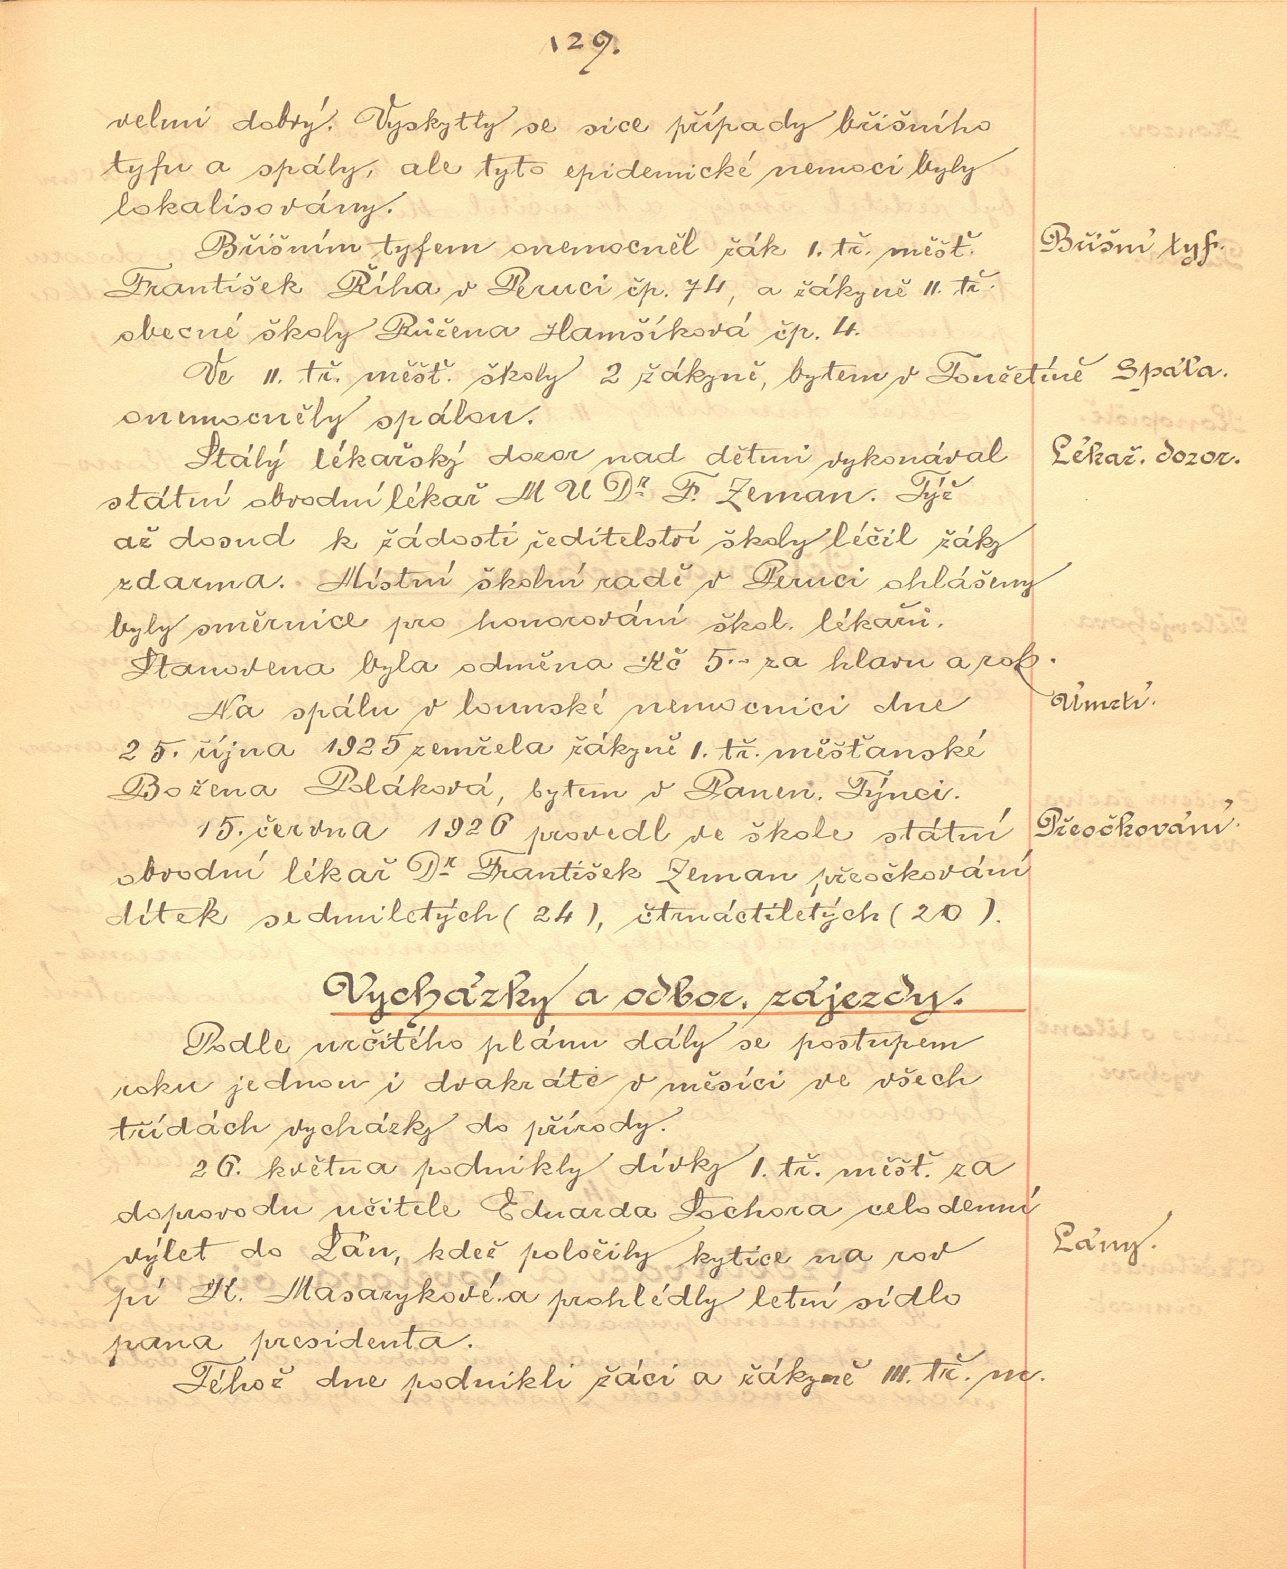 129.
velmi dobrý. Vyskytly se sice případy břišního
tyfu a spály, ale tyto epidemické nemoci byly
lokalisovány.
Břišním tyfem onemocněl žák 1. tř. měšť.
Břišní tyf.
František Říha v Peruci čp. 74, a žákyně II. tř.
obecné školy Růžena Hamšíková čp. 4.
Ve II. tř. měšť. školy 2 žákyně, bytem v Tončetíně
Spála.
onemocněly spálou.
Stálý lékařský dozor nad dětmi vykonával
Lékař. dozor.
státní obvodní lékař MUDr F. Zeman. Týž
až dosud k žádosti ředitelství školy léčil žáky
zdarma. Místní školní radě v Peruci ohlášeny
byly směrnice pro honorování škol. lékařů.
Stanovena byla odměna Kč 5.- za hlavu a rok.
Na spálu v lounské nemocnici dne
Úmrtí.
25. října 1925 zemřela žákyně 1. tř. měšťanské
Božena Poláková, bytem v Panen. Týnci.
15. června 1926 provedl ve škole státní
Přeočkování.
obvodní lékař Dr František Zeman přeočkování
dítek sedmiletých (24), čtrnáctiletých (20).
Vycházky a odbor. zájezdy.
Podle určitého plánu dály se postupem
roku jednou i dvakráte v měsíci ve všech
třídách vycházky do přírody.
26. května podnikly dívky 1. tř. měšť. za
doprovodu učitele Eduarda Sochora celodenní
výlet do Lán, kdež položily kytice na rov
Lány.
pí K. Masarykové a prohlédly letní sídlo
pana presidenta.
Téhož dne podnikli žáci a žákyně III. tř. m.